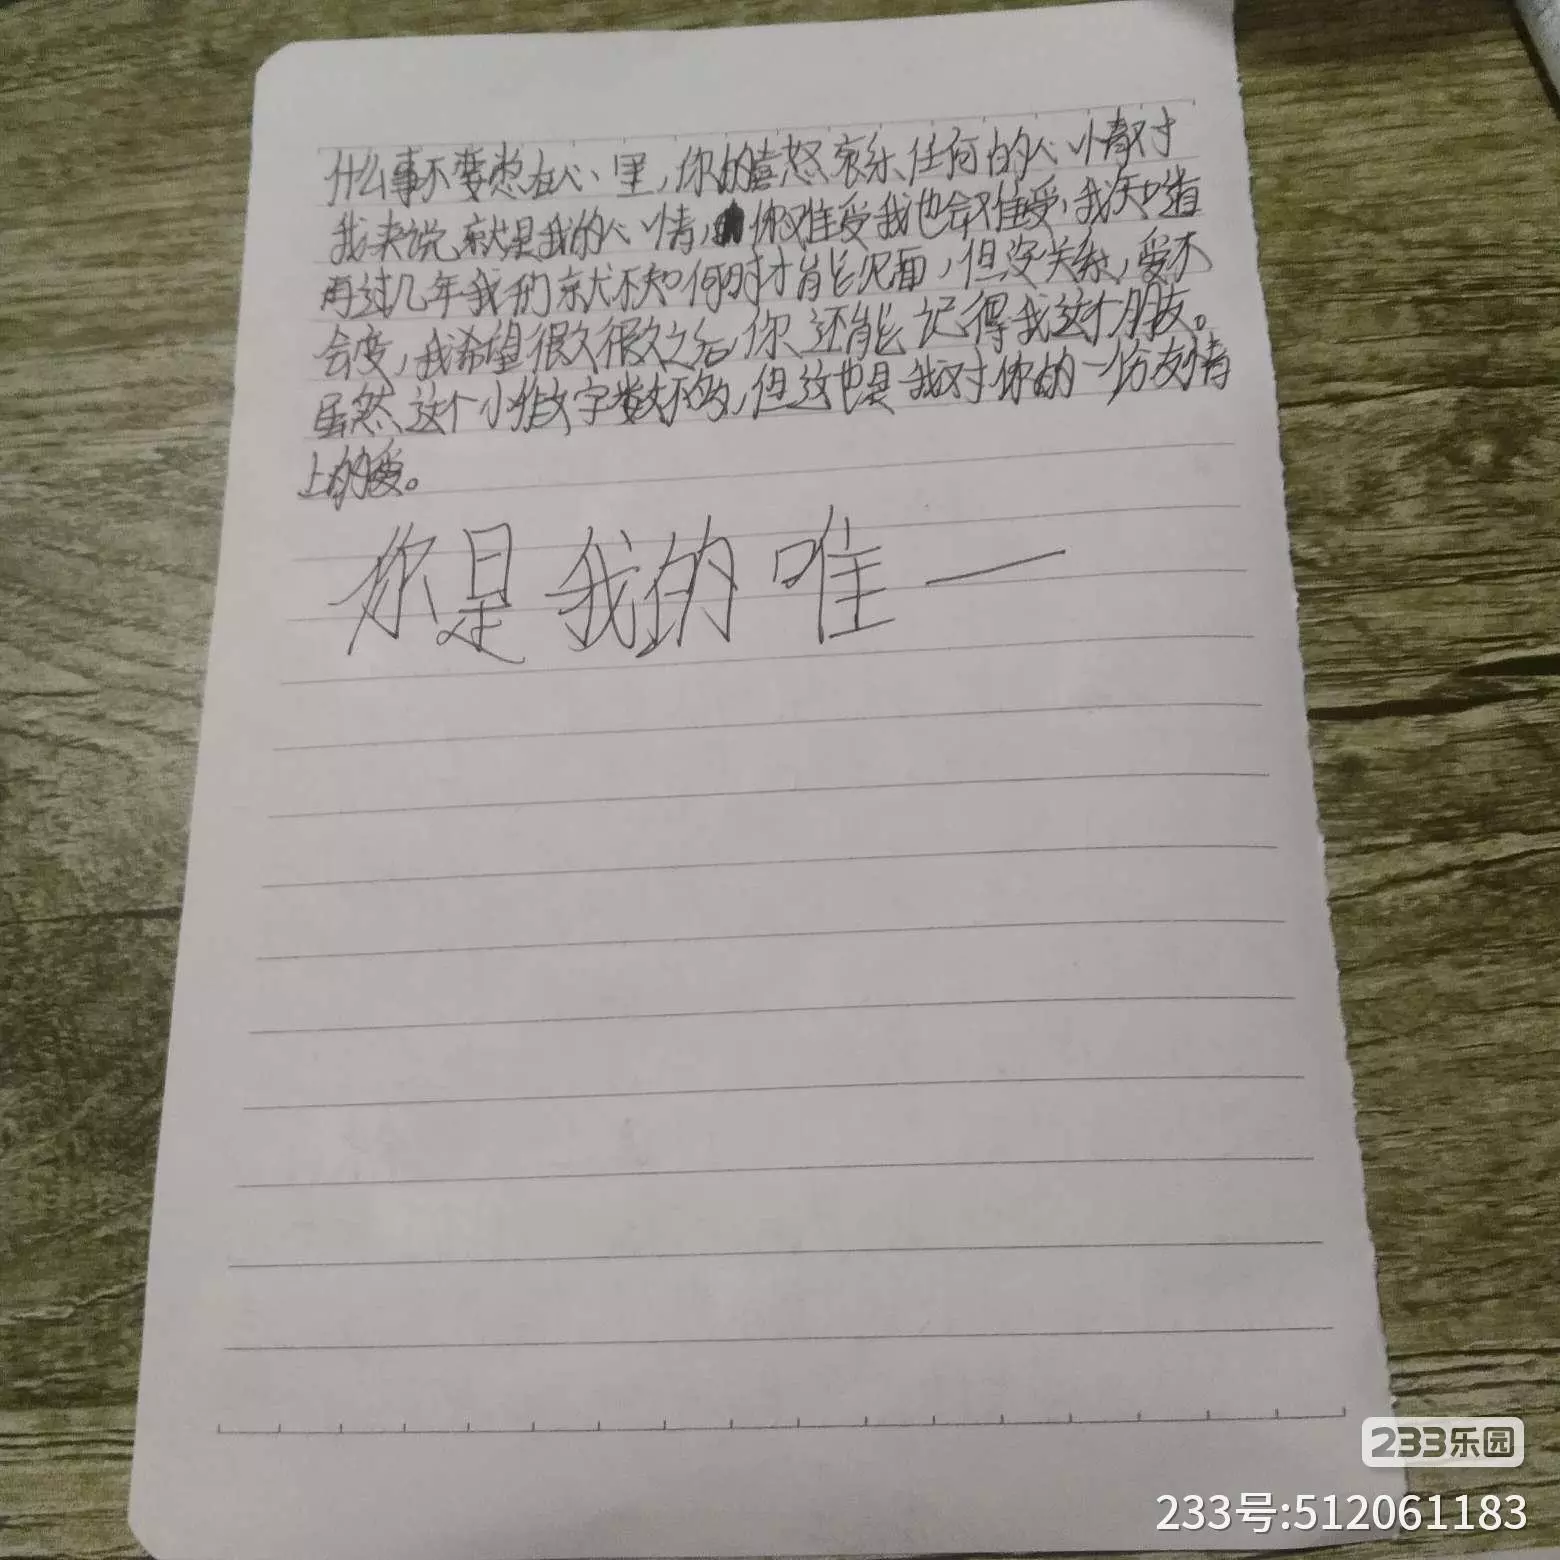 什么事不要憋在心里，你的喜怒哀乐、任何的心情对
我来说就是我的心情，你难受我也会难受，我知道
再过几年我们就不知何时才能见面，但没关系，爱不
会变，我希望很久很久之后，你还能记得我这个朋友。
虽然这个小作文字数不够，但这也是我对你的一份友情
上的爱。
你是我的唯一
233乐园
233号:512061183